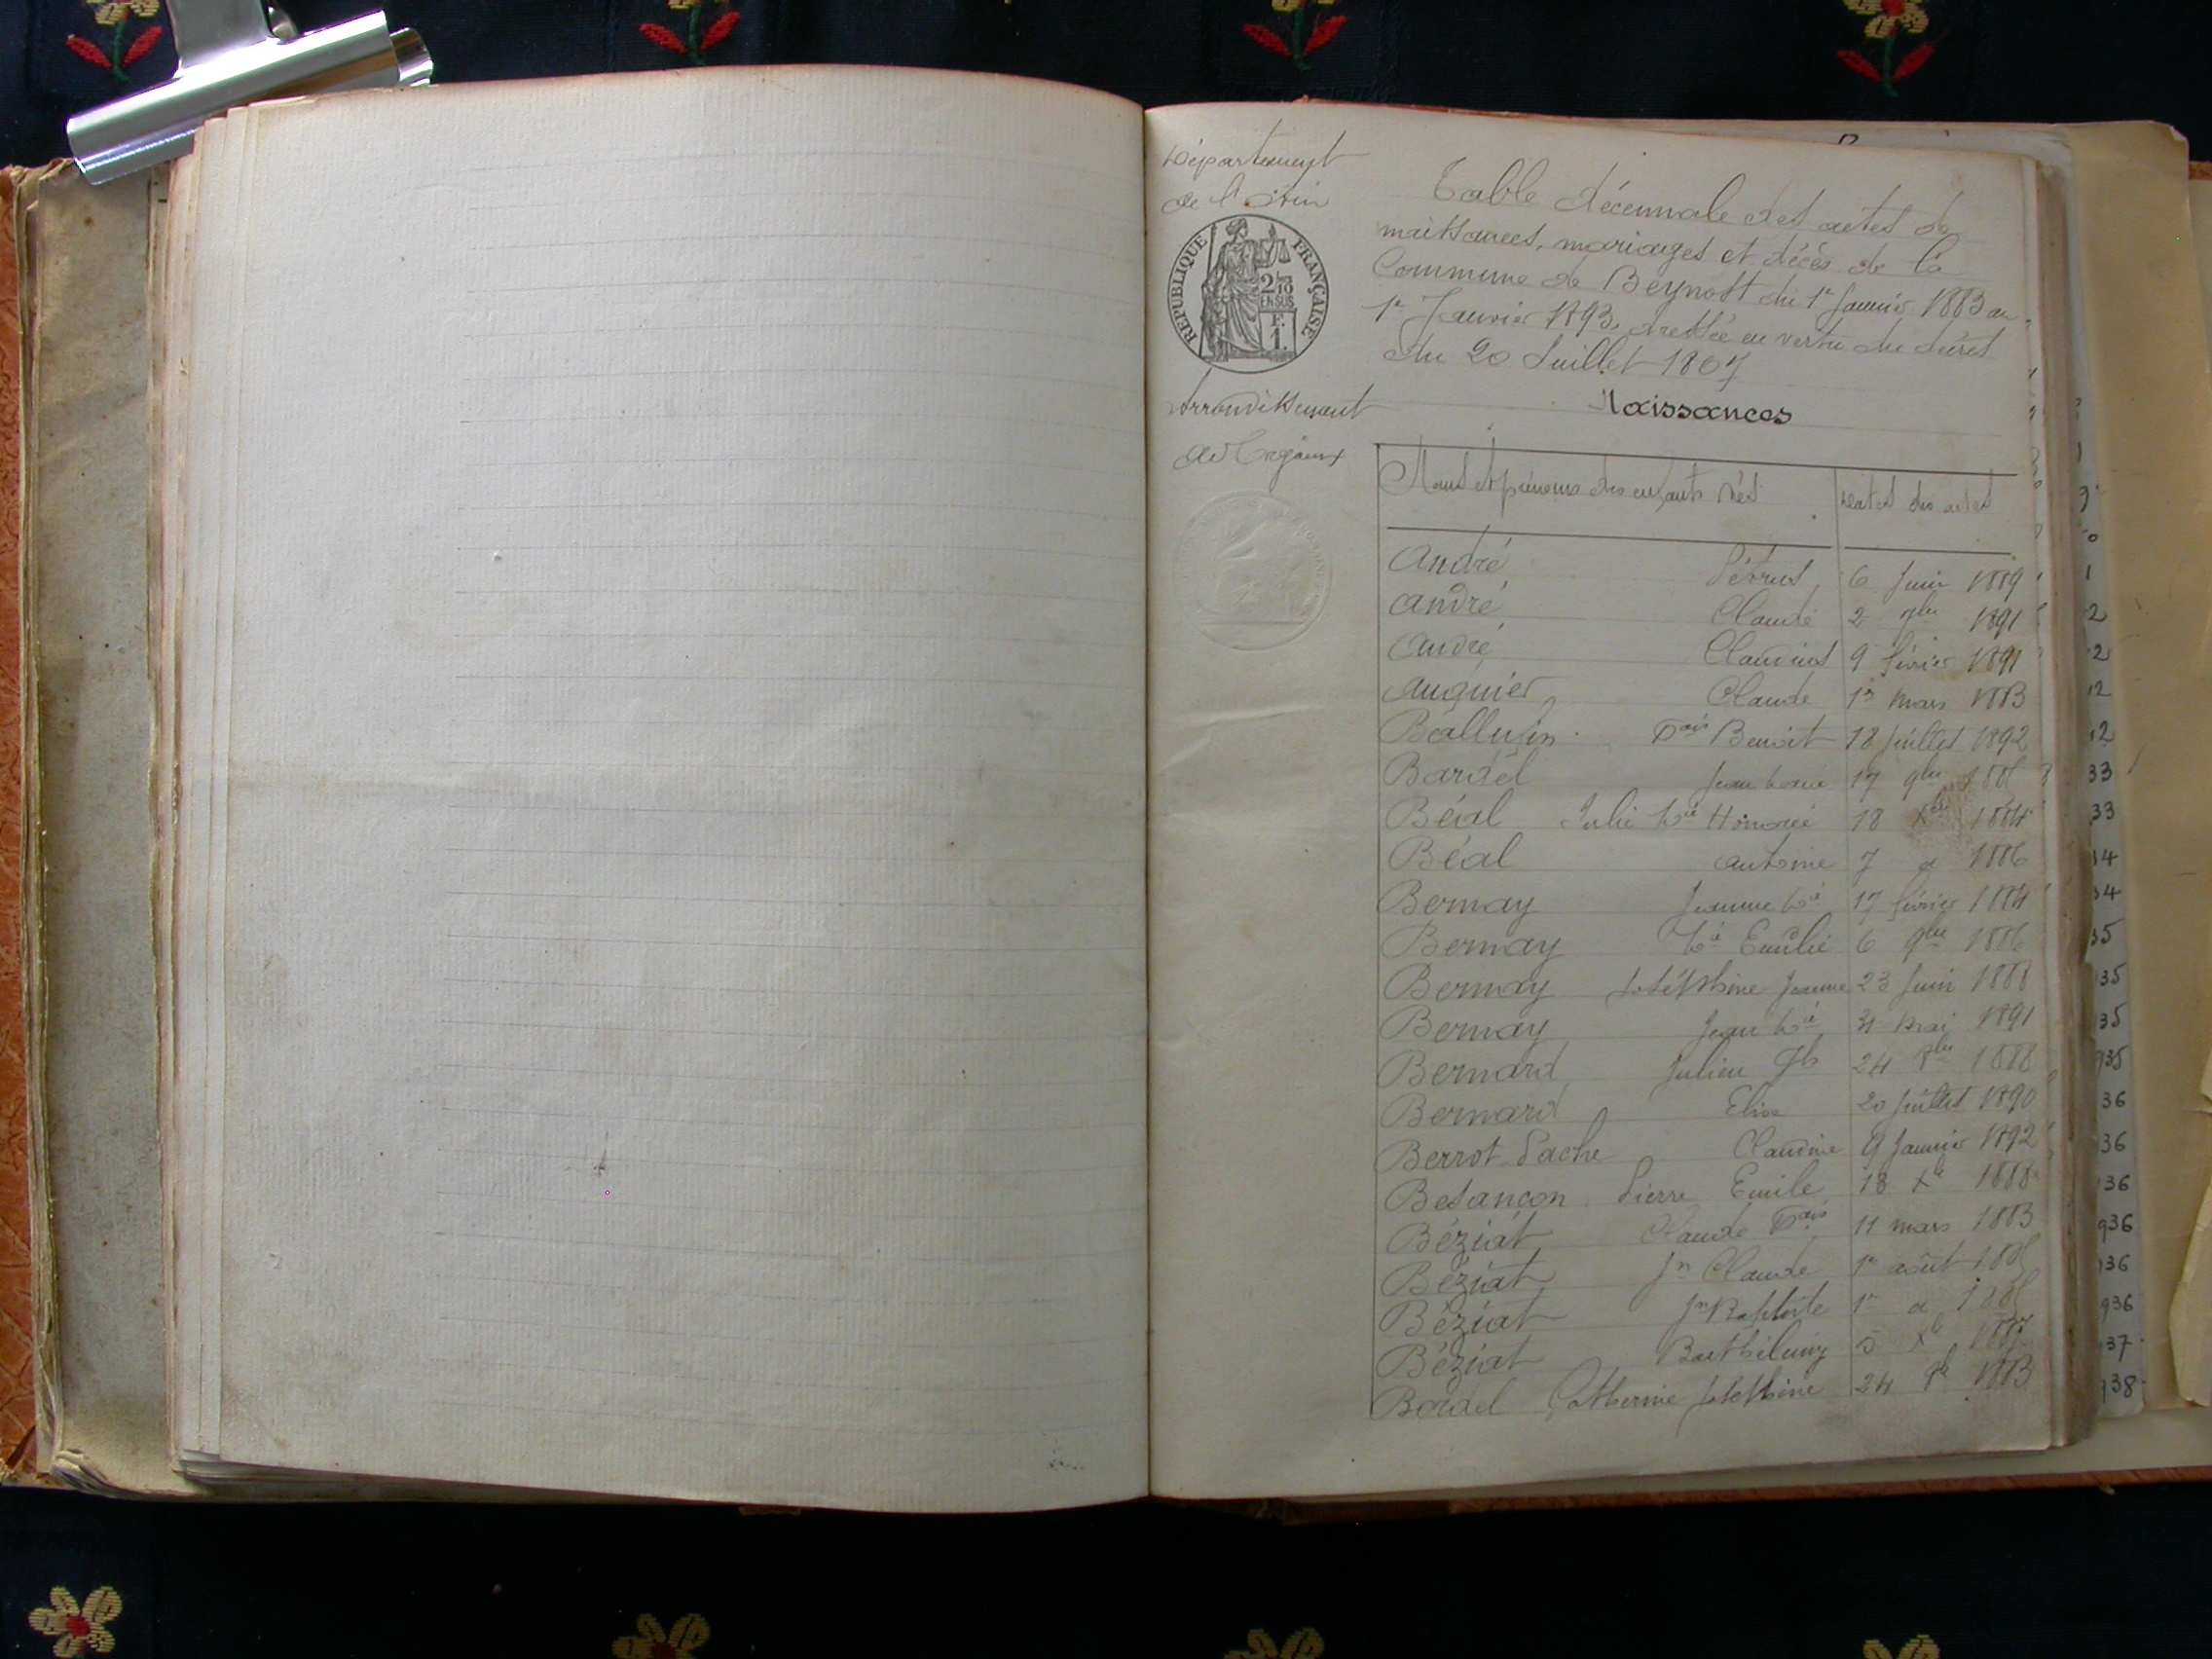 Département
de l'Ain
RÉPUBLIQUE FRANÇAISE
2/10
EN SUS
F.
1.
Arrondissement
de Trévoux
Table décennale des actes de
naissances, mariages et décès de la
Commune de Beynost du 1er Janvier 1883 au
1er Janvier 1893, dressée en vertu du décret
du 20 Juillet 1807
Naissances
Noms et prénoms des enfants nés dates des actes
André Pétrus 6 Juin 1889
André Claude 2 7bre 1891
André Claudius 9 février 1891
Auguier Claude mars 1883
Ballufin fois Benoit 18 Juillet 1892
Bardel Jean 17 9bre
Béal Julie Honorée 18 Xbre 1884
Béal Antoine 7 d 1886
Bernay Jeanne 17 février 1884
Bernay Emilie 6 9bre 1886
Bernay Joséphine Jeanne 23 Juin 1888
Bernay Jean 31 mai 1891
Bernard Julien Jh 24 8bre 1888
Bernard Elisa 20 Juillet 1890
Berrot Pache Claudine 9 Janvier 1892
Besançon Pierre Emile 18 Xe 1888
Béziat Claude fois 11 mars 1883
Béziat Jn Claude 1er août
Béziat Jn Baptiste 1er d
Béziat Barthélemy 5 Xe
Bordel Catherine Joséphine 24 1883
33
33
34
35
35
35
935
36
36
36
936
936
936
37
938